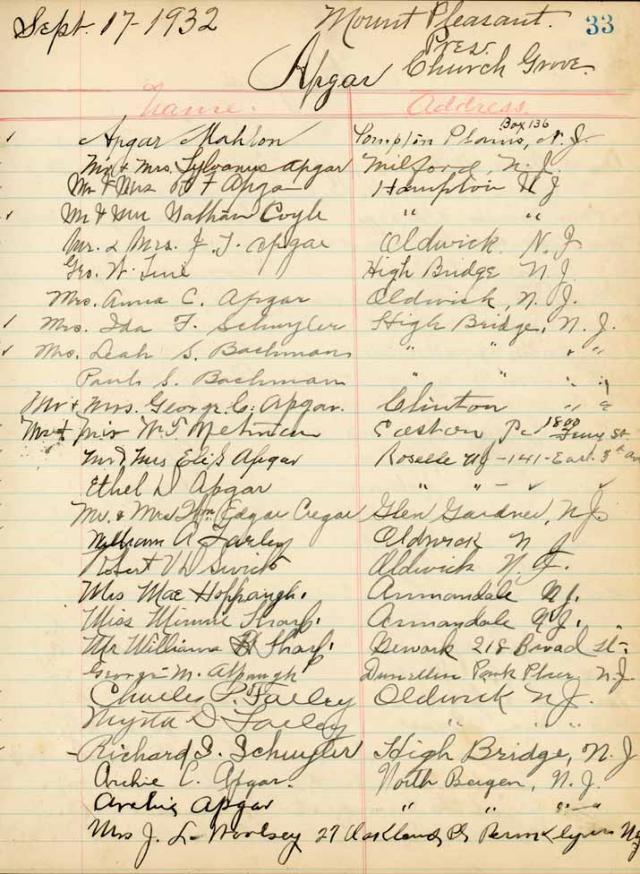 Sept. 17-1932 Mount Pleasant. 33
Pres.
Apgar Church Grove.
Name. Address
Box 136
Apgar Mahlon Pompton Plains, N. J.
Mr & Mrs. Sylvanus Apgar Milford, N. J.
Mr & Mrs Apgar Hampton N J
Mr & Mrs Nathan Coyle " "
Mr. & Mrs. J. T. Apgar Oldwick N. J
Geo. W. High Bridge N J
Mrs. Anna C. Apgar Oldwick, N. J.
Mrs. Ida F. Schuyler High Bridge, N. J.
Mrs. Leah S. Bachmann " " "
Paul S. Bachmann " " "
Mr & Mrs. George C. Apgar. Clinton " "
Mr & Mrs W. T. Easton Pa 1800 St
Mr & Mrs Eli S Apgar Roselle NJ - 141 - East 3rd Av
Ethel D Apgar " " - " "
Mr. & Mrs Wm. Edgar Cregar Glen Gardner, N J.
William A Farley Oldwick N J
Robert Oldwick N. J.
Mrs Mae Hoppaugh. Annandale N J.
Miss Minnie Sharp. Annandale N. J.
Mr William H Sharp. Newark 218 Broad St.
George M. Alpaugh Dunellen Park Place N.J
Charles P. Farley Oldwick N J.
Myrta D Farley " "
Richard S. Schuyler High Bridge, N. J
Archie C. Apgar. North Bergen, N. J.
Archie Apgar " " " "
Mrs J. L. Woolsey 27 Oaklands Pl